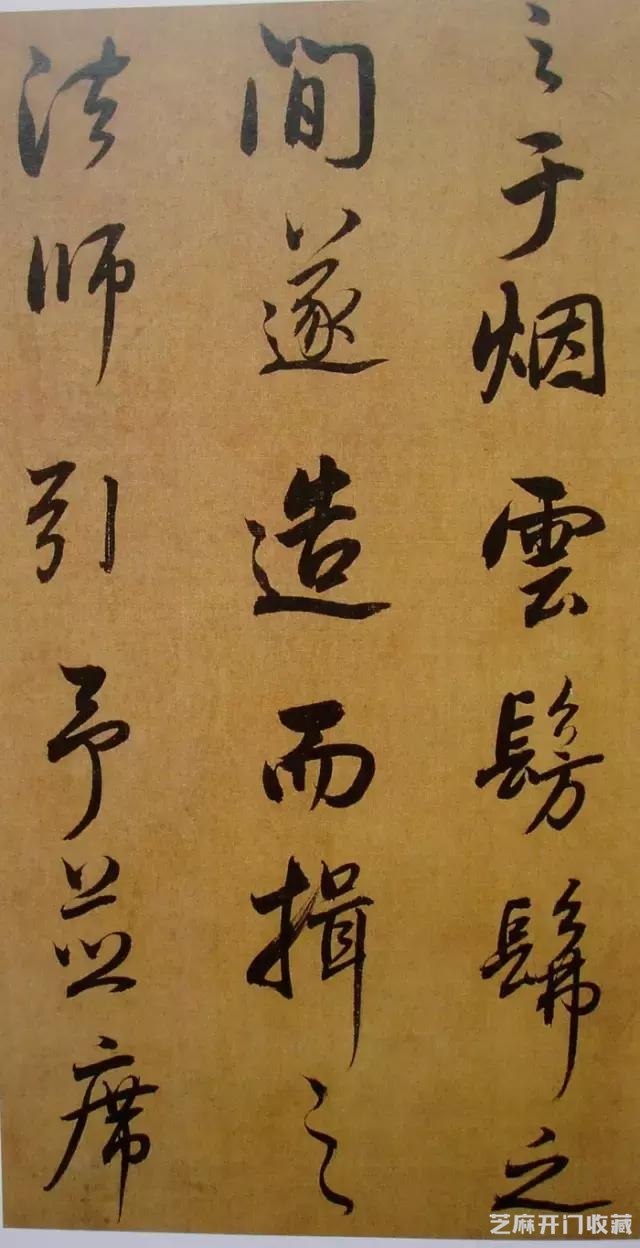 之于烟雲髣髴之
間遂造而揖之
法师引予並席
芝麻开门收藏